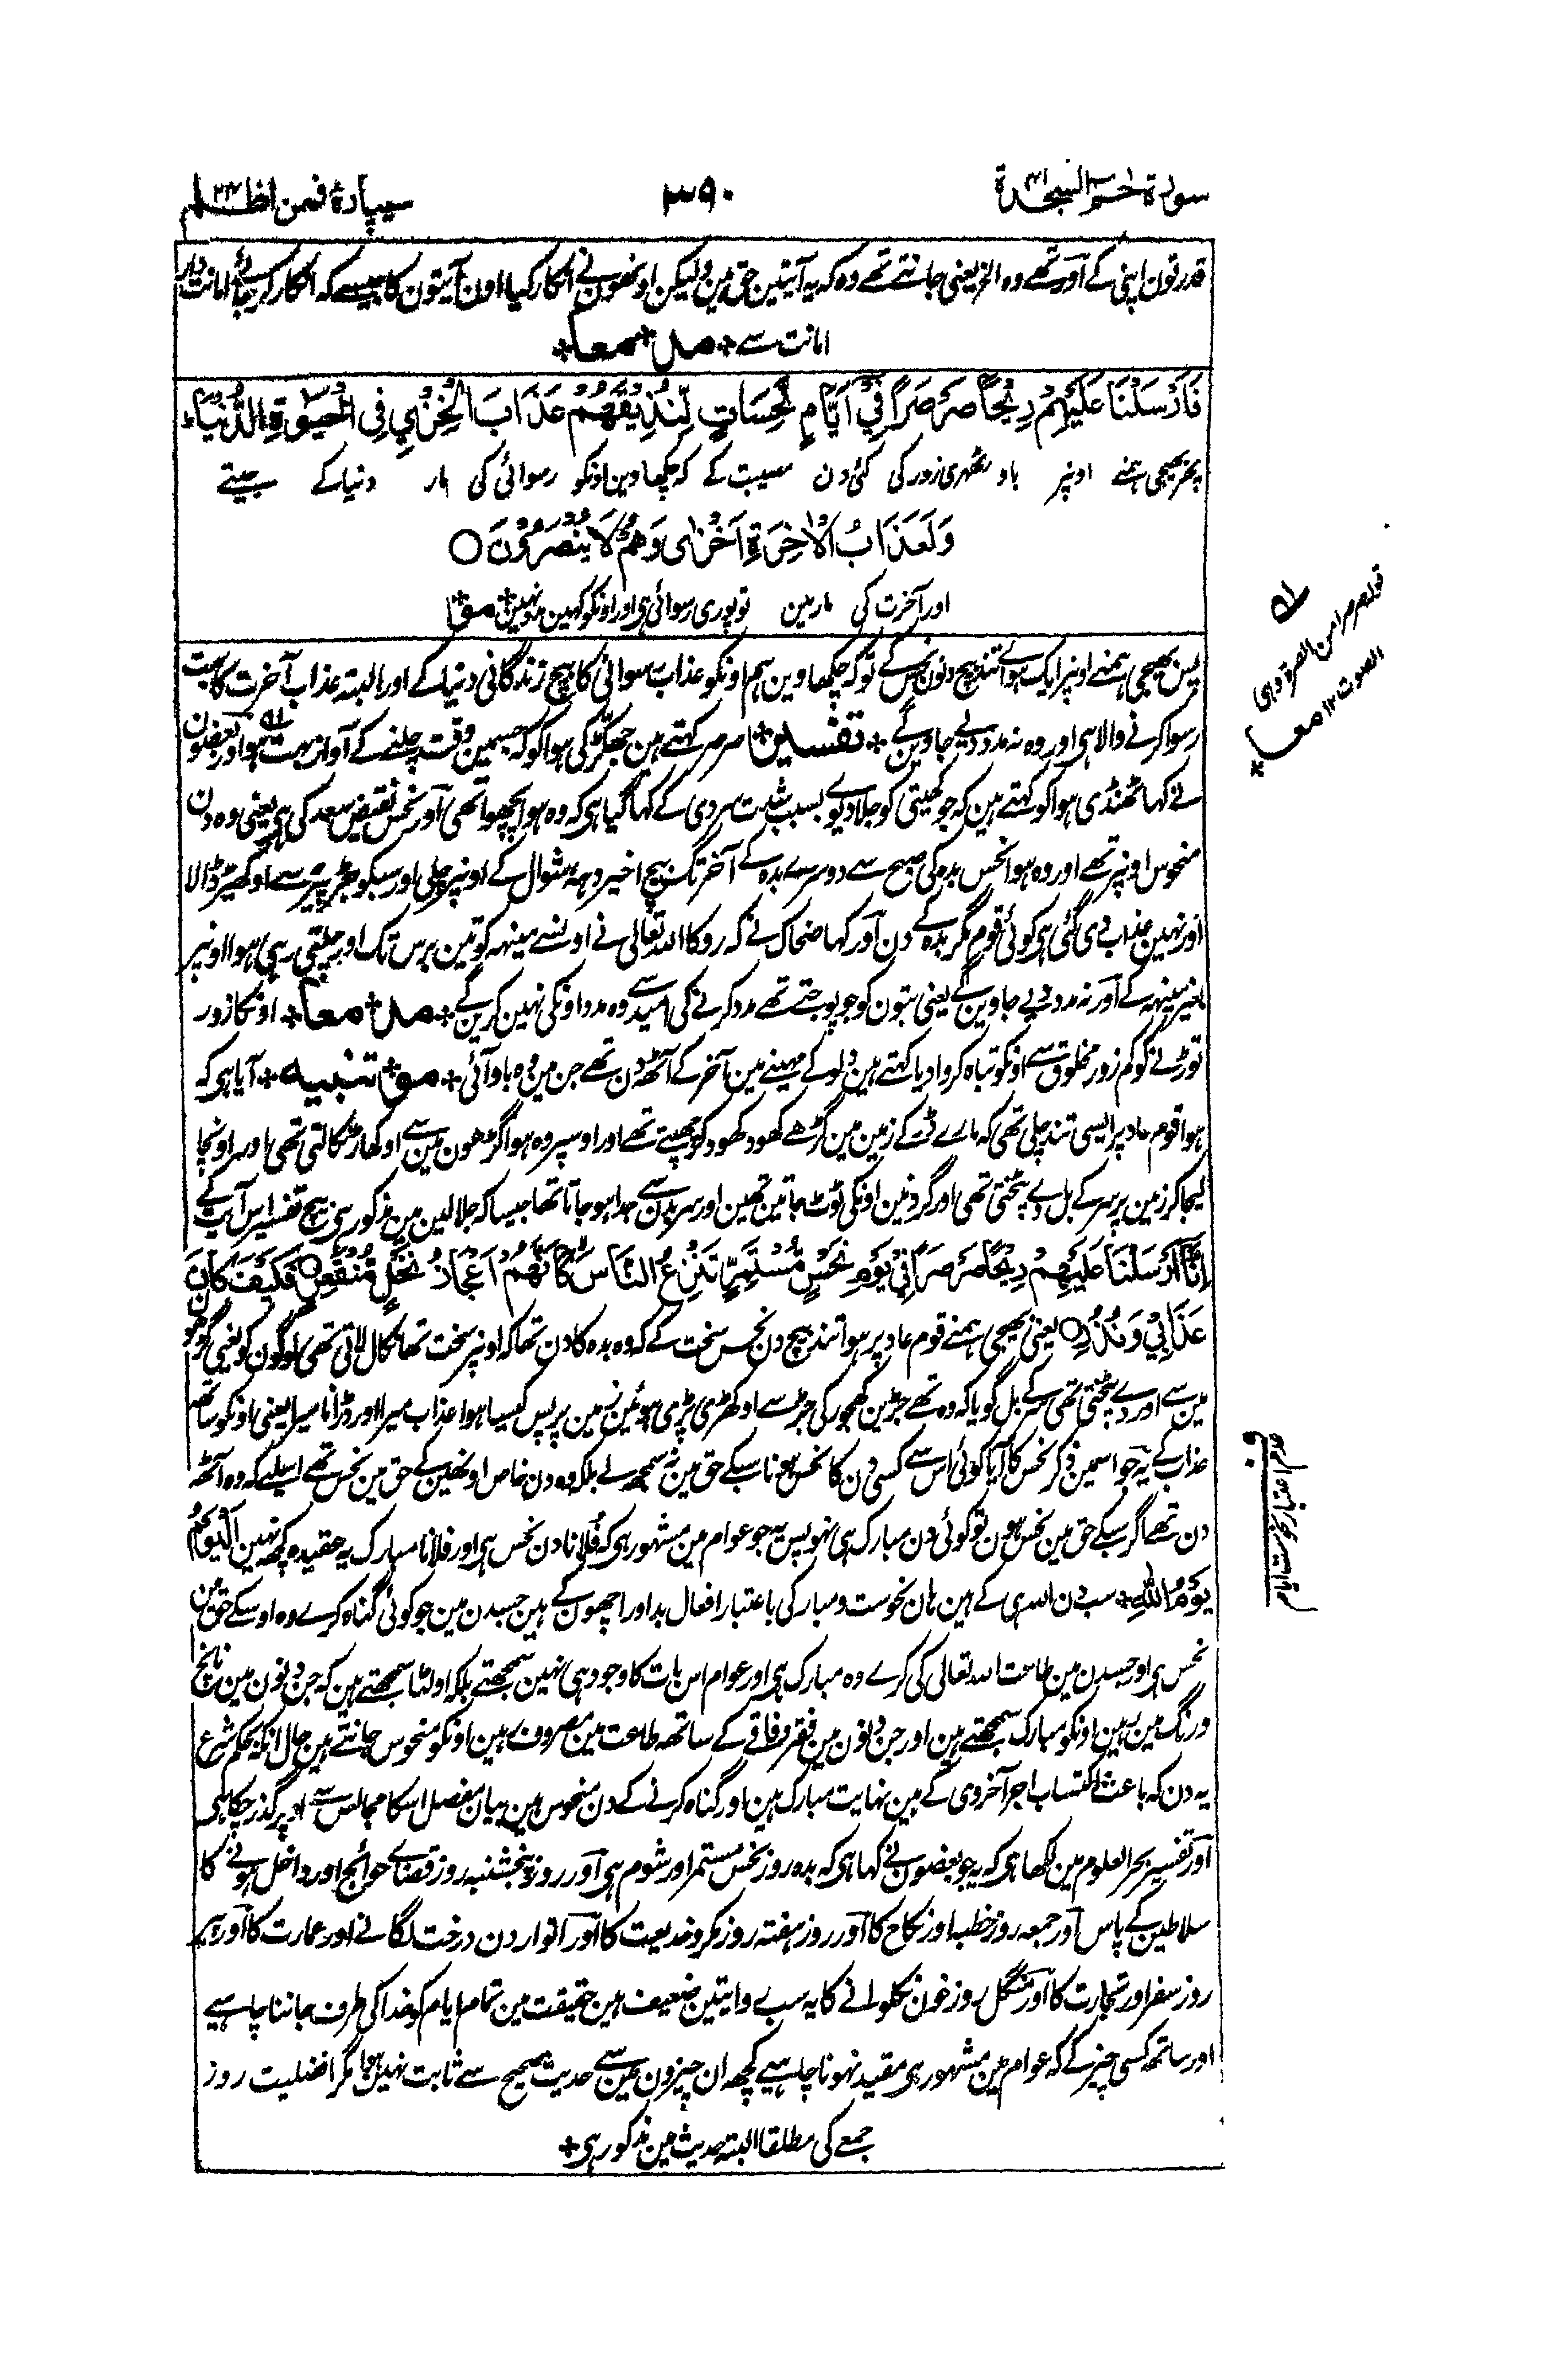 سورۃ حٰم السجدۃ ۴۱
۳۹۰
سیپارۂ فمن اظلم ۲۴
قدرتون اپنی کے آور تھے وہ الخ یعنی جانتے تھے وہ کہ یہ آیتین حق ہین ولیکن اونھون نے انکار کیا اون آیتون کا جیسے کہ انکار کر جائے امانت دار
امانت سے + مدا + معا +
فَاَرْسَلْنَا عَلَيْهِمْ رِيْحًا صَرْصَرًا فِيْٓ اَيَّامٍ نَّحِسَاتٍ لِّنُذِيْقَهُمْ عَذَابَ الْخِزْيِ فِى الْحَيٰوةِ الدُّنْيَا ؕ
پھر بھیجی ہمنے اونپر باو ٹھہری زور کی کئی دن مصیبت کے کہ چکھاوین اونکو رسوائی کی مار دنیا کے جیتے
وَلَعَذَابُ الْاٰخِرَةِ اَخْزٰى وَهُمْ لَا يُنْصَرُوْنَ ○
اور آخرت کی مار مین تو پوری رسوائی ہی اور اونکو کہین مدد نہین + مو +
پس بھیجی ہمنے اونپر ایک ہوا تند بیچ دنون نحس کے تو کہ چکھاوین ہم اونکو عذاب رسوائی کا بیچ زندگانی دنیا کے اور البتہ عذاب آخرت کا بہت
رسوا کرنے والا ہی اور وہ نہ مدد دیے جاوین گے + تفسیر + صرصر کہتے ہین جھکڑ کی ہوا کو کہ جسمین وقت چلنے کے آواز بہت ہو اور بعضون
نے کہا ٹھنڈی ہوا کو کہتے ہین کہ جو کھیتی کو جلا دیوے بسبب شدت سردی کے کہا گیا ہی کہ وہ ہوا پچھوا تھی آور نحس نقیض سعد کی ہی یعنی وہ دن
منحوس اونپر تھے اور وہ ہوا نحس بدہ کی صبح سے دوسرے بدہ کے آخر تک بیچ اخیر دہہ شوال کے اونپر چلی اور سبکو جڑ پیڑ سے اوکھیڑ ڈالا
اور نہین عذاب دی گئی ہی کوئی قوم مگر بدہ کے دن آور کہا ضحاک نے کہ روکا اللہ تعالی نے اونسے مینہہ کو تین برس تک اور چلتی رہی ہوا اونپر
بغیر مینہہ کے آور نہ مدد دیے جاوین گے یعنی بتون کو جو پوجتے تھے مدد کرنے کی امید سے وہ مدد اونکی نہین کرین گے + مدا + معا + اونکا زور
توڑنے کو کم زور مخلوق سے اونکو تباہ کروا دیا کہتے ہین دلو کے مہینے مین آخر کے آٹھ دن تھے جن مین وہ باو آئی + مو + تنبیہ + آیا ہی کہ
ہوا قوم عاد پر ایسی تند چلی تھی کہ مارے ڈر کے زمین مین گڑھے کھود کھود کو چھپتے تھے اور اوسپر وہ ہوا گڑھون مین سے اوکھاڑ نکالتی تھی اور اونچا
لیجا کر زمین پر سر کے بل دے پٹختی تھی اور گردنین اونکی ٹوٹ جاتین تھین اور سر بدن سے جدا ہو جاتا تھا جیسا کہ جلالین مین مذکور ہی بیچ تفسیر اس آیت کے
اِنَّآ اَرْسَلْنَا عَلَيْهِمْ رِيْحًا صَرْصَرًا فِيْ يَوْمِ نَحْسٍ مُّسْتَمِرٍّ تَنْزِعُ النَّاسَ كَاَنَّهُمْ اَعْجَازُ نَخْلٍ مُّنْقَعِرٍ ○ فَكَيْفَ كَانَ
عَذَابِيْ وَنُذُرِ ○ یعنی بھیجی ہمنے قوم عاد پر ہوا تند بیچ دن نحس سخت کے کہ وہ بدہ کا دن تھا کہ اونپر سخت تھا نکال لاتی تھی لوگون کو یعنی گڑھو
مین سے اور دے پٹختی تھی سر کے بل گویا کہ وہ تھے جڑین کھجور کی جڑ سے اوکھڑی پڑی ہوئین زمین پر پس کیسا ہوا عذاب میرا اور ڈرانا میرا یعنی اونکو ساتھ
عذاب کے یہ جو اسمین ذکر نحس کا آیا کوئی اس سے کسی دن کا نحس ہونا سبکے حق مین نہ سمجھ لے بلکہ وہ دن خاص اونھین کے حق مین نحس تھے اسلیے کہ وہ آٹھ
دن تھے اگر سبکے حق مین نحس ہون تو کوئی دن مبارک ہی نہو پس یہ جو عوام مین مشہور ہی کہ فلانا دن نحس ہی اور فلانا مبارک یہ عقیدہ کچھ نہین اَلْيَوْمُ
يَوْمُ اللّٰهِ + سب دن اللہ ہی کے ہین ہان نحوست و مبارکی باعتبار افعال بد اور اچھون کے ہین جسدن مین جو کوئی گناہ کرے وہ اوسکے حق مین
نحس ہی اور جسدن مین طاعت اللہ تعالی کی کرے وہ مبارک ہی اور عوام اس بات کا وجود ہی نہین سمجھتے بلکہ اولٹا سمجھتے ہین کہ جن دنون مین ناچ
و رنگ مین رہین اونکو مبارک سمجھتے ہین اور جن دنون مین فقر و فاقے کے ساتھ طاعت مین مصروف رہین اونکو منحوس جانتے ہین حال آنکہ بحکم شرع
یہ دن کہ باعث اکتساب اجر آخروی کے ہین نہایت مبارک ہین اور گناہ کرنے کے دن منحوس ہین بیان مفصل اسکا مجالس سے اوپر گذر چکا ہی
آور تفسیر بحر العلوم مین لکھا ہی کہ یہ جو بعضون نے کہا ہی کہ بدہ روز نحس مستمر اور شوم ہی آور روز پنجشنبہ روز قضاے حوائج اور داخل ہونے کا
سلاطین کے پاس آور جمعہ روز خطبہ اور نکاح کا آور روز ہفتہ روز مکر و خدیعت کا آور اتوار دن درخت لگانے اور عمارت کا آور پیر
روز سفر اور تجارت کا آور منگل روز خون نکلوانے کا یہ سب روایتین ضعیف ہین حقیقت مین تمام ایام کو خدا کی طرف جاننا چاہیے
اور ساتھ کسی چیز کے کہ عوام مین مشہور ہی مقید نہونا چاہیے کچھ ان چیزون مین سے حدیث صحیح سے ثابت نہین ہوا مگر افضلیت روز
جمعے کی مطلقا البتہ حدیث مین مذکور ہی +
قولہ صرصرا من الصرۃ وہی
الصوت ۱۲ معا +